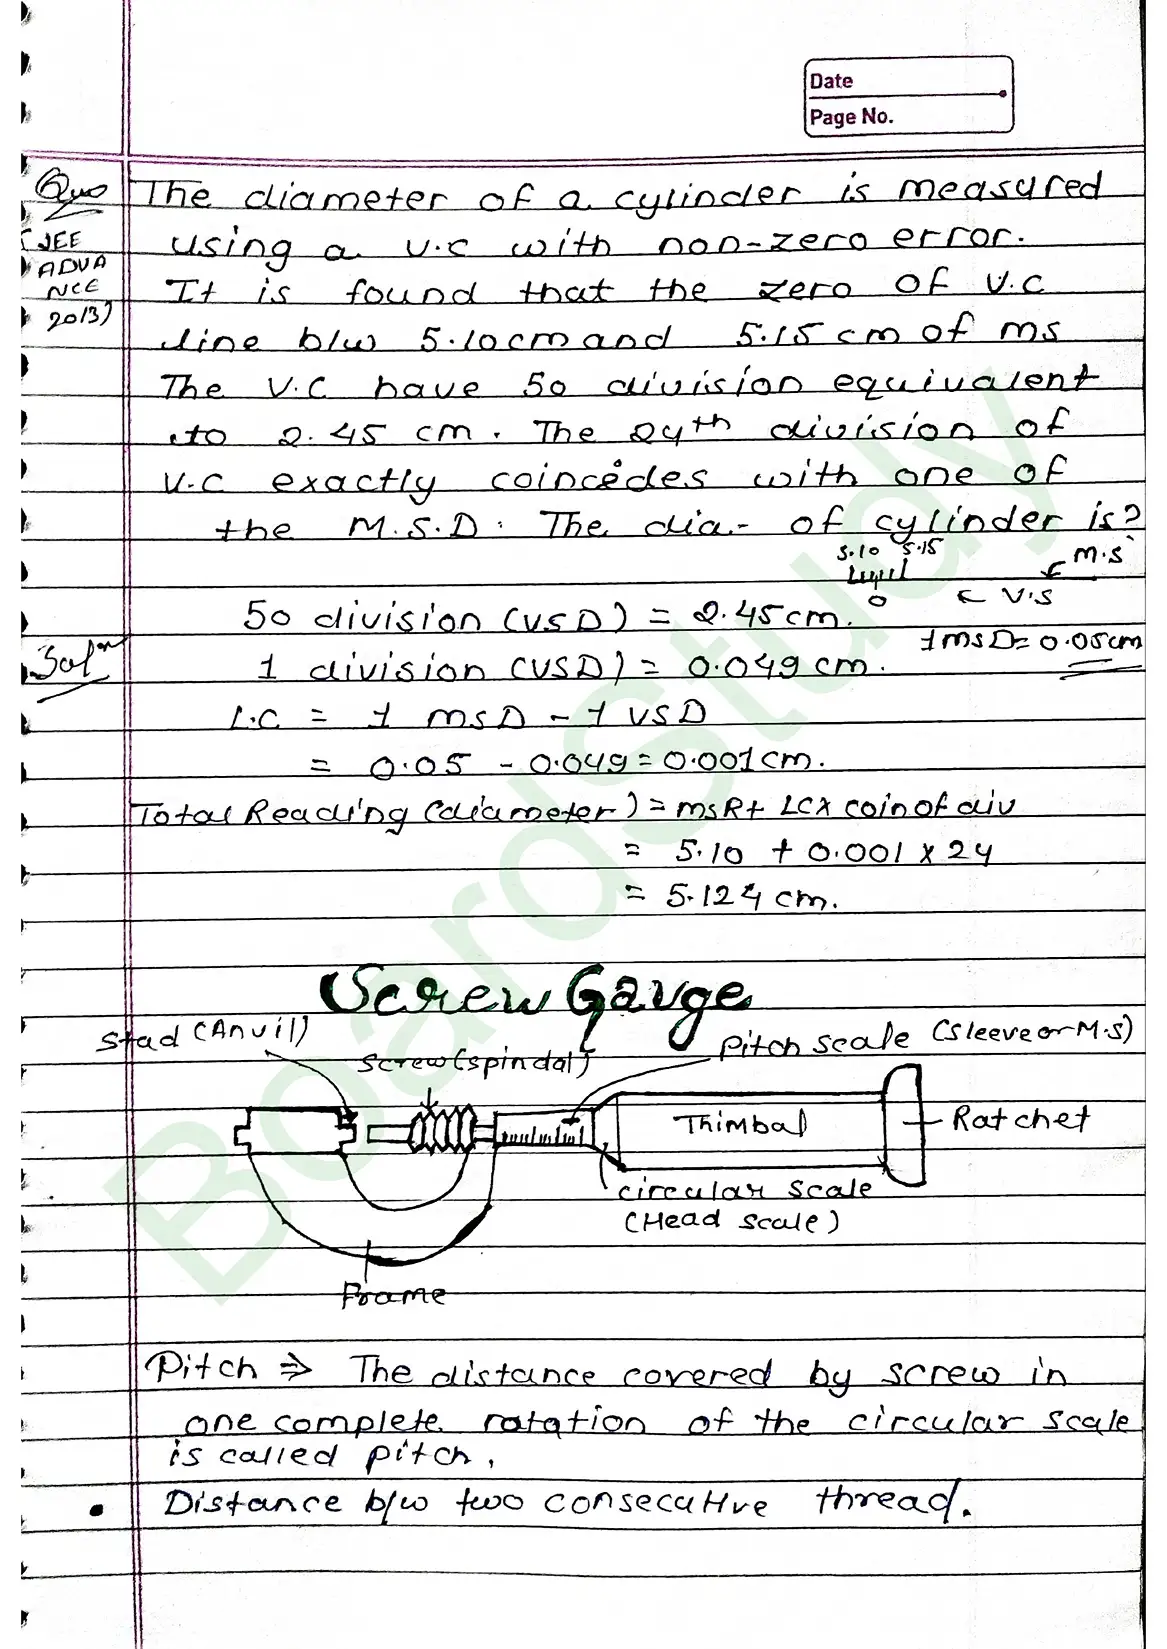 Date
Page No.
Que The diameter of a cylinder is measured
(JEE using a v.c with non-zero error.
ADVA
NCE It is found that the zero of v.c
2013) line b/w 5.10cm and 5.15 cm of ms
The v.c have 50 division equivalent
to 2.45 cm. The 24th division of
v.c exactly coincedes with one of
the M.S.D. The dia.- of cylinder is?
5.10 5.15
M.S
0
V.S
50 division (VSD) = 2.45cm.
1msD= 0.05cm
Soln
1 division (VSD) = 0.049 cm.
L.C = 1 msD - 1 VSD
= 0.05 - 0.049 = 0.001cm.
Total Reading (diameter) = msR+ LCX coin of div
= 5.10 + 0.001 x 24
= 5.124 cm.
Screw Gauge
Stad (Anvil)
Screw (spindal)
Pitch scale (sleeve or M.S)
Thimbal
Ratchet
circular scale
(Head scale)
Frame
Pitch ⇒ The distance covered by screw in
one complete rotation of the circular scale
is called pitch.
• Distance b/w two consecutive thread.
BoardStudy